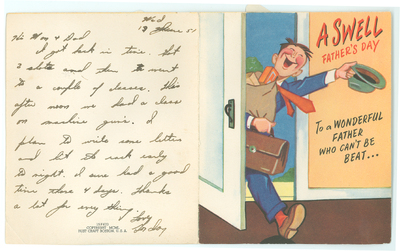 Wed
13 June 51
Hi Mom & Dad
I got back in time. Got
2 slots and then went
to a couple of classes. This
after noon we had a class
on machine guns. I
plan to write some letters
and hit the rack early
to night. I sure had a good
time those 4 days. thanks
a lot for every thing.
Love
COPYRIGHT MCML
RUST CRAFT BOSTON, U.S.A.
A SWELL
FATHER'S DAY
To a WONDERFUL
FATHER
WHO CAN'T BE
BEAT...